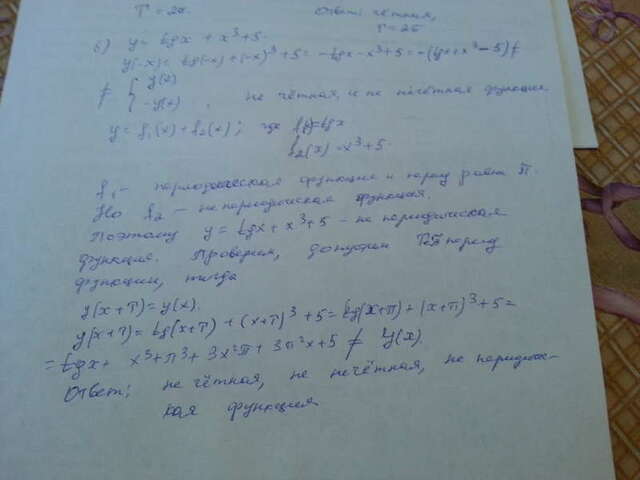 T = 2π.
Ответ: чётная,
T = 2π
б) y = tgx + x³+5.
y(-x) = tg(-x) + (-x)³ + 5 = -tgx - x³+5 = -(tgx+x³-5) ≠
≠ { y(x)
-y(x) , не чётная, и не нечётная функция.
y = f₁(x) + f₂(x); где f₁(x)=tgx
f₂(x) = x³+5.
f₁ - периодическая функция и период равен π.
Но f₂ - непериодическая функция.
Поэтому y = tgx + x³+5 - не периодическая
функция. Проверим, допустим T=π период
функции, тогда
y(x+T) = y(x).
y(x+T) = tg(x+T) + (x+T)³ + 5 = tg(x+π) + (x+π)³+5 =
= tgx + x³+π³+ 3x²π + 3π²x+5 ≠ y(x)
Ответ: не чётная, не нечётная, не периодичес-
кая функция.